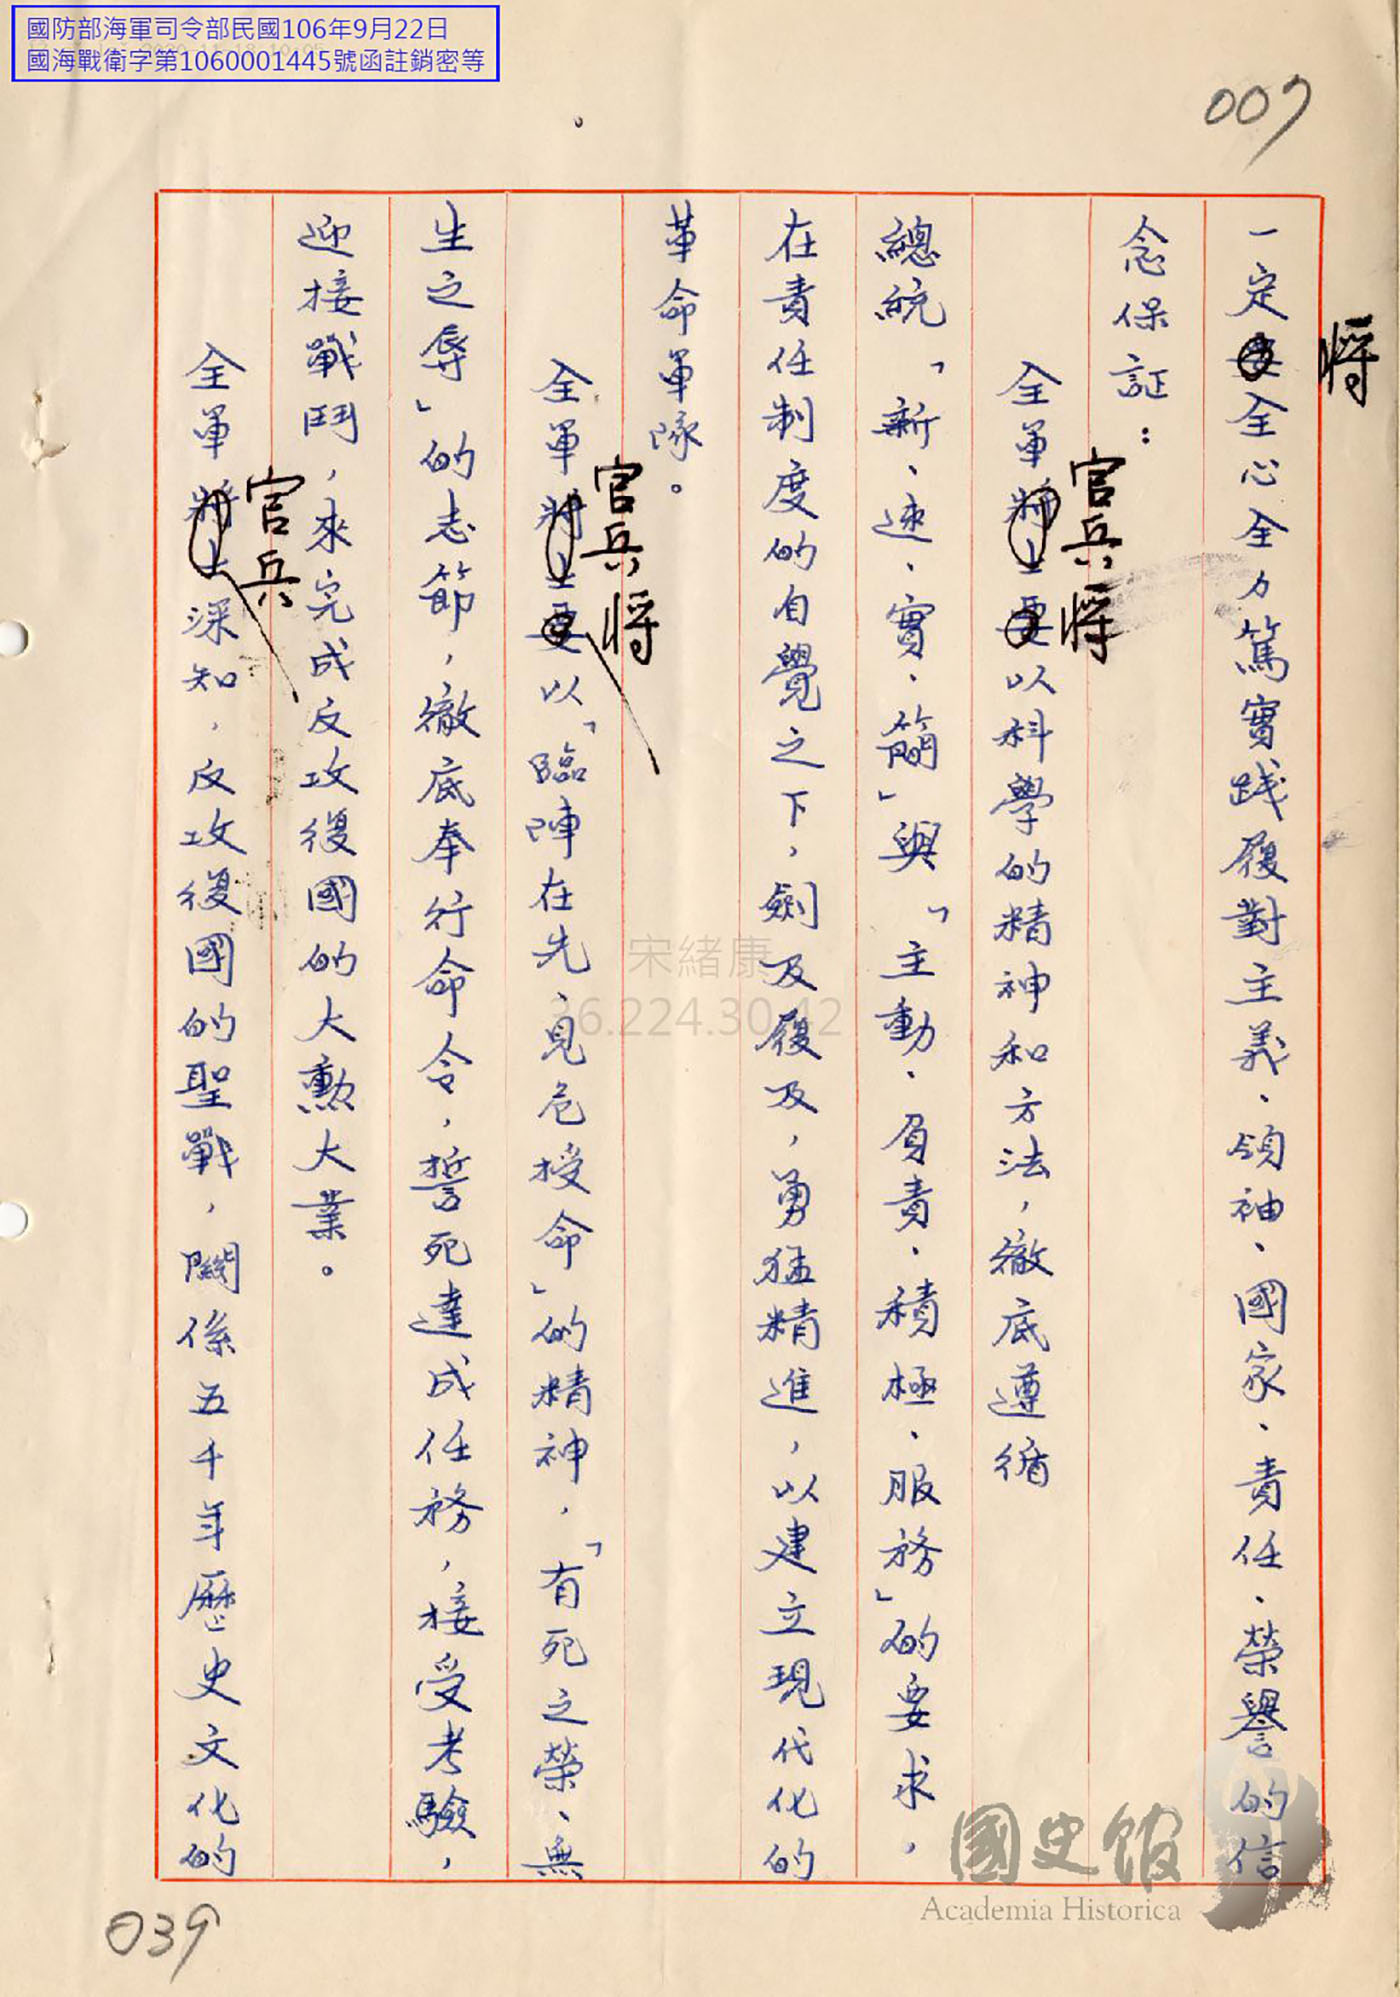 國防部海軍司令部民國106年9月22日
國海戰衛字第1060001445號函註銷密等
007
一定要全心全力篤實踐履對主義、領袖、國家、責任、榮譽的信
將
念保証：
全軍將士要以科學的精神和方法，徹底遵循
官兵將
總統「新、速、實、簡」與「主動、負責、積極、服務」的要求，
在責任制度的自覺之下，劍及履及，勇猛精進，以建立現代化的
革命軍隊。
全軍將士要以「臨陣在先，見危授命」的精神，「有死之榮、無
官兵將
生之辱」的志節，徹底奉行命令，誓死達成任務，接受考驗，
迎接戰鬥，來完成反攻復國的大勳大業。
全軍將士深知，反攻復國的聖戰，關係五千年歷史文化的
官兵
宋緒康
36.224.30.42
國史館
Academia Historica
039